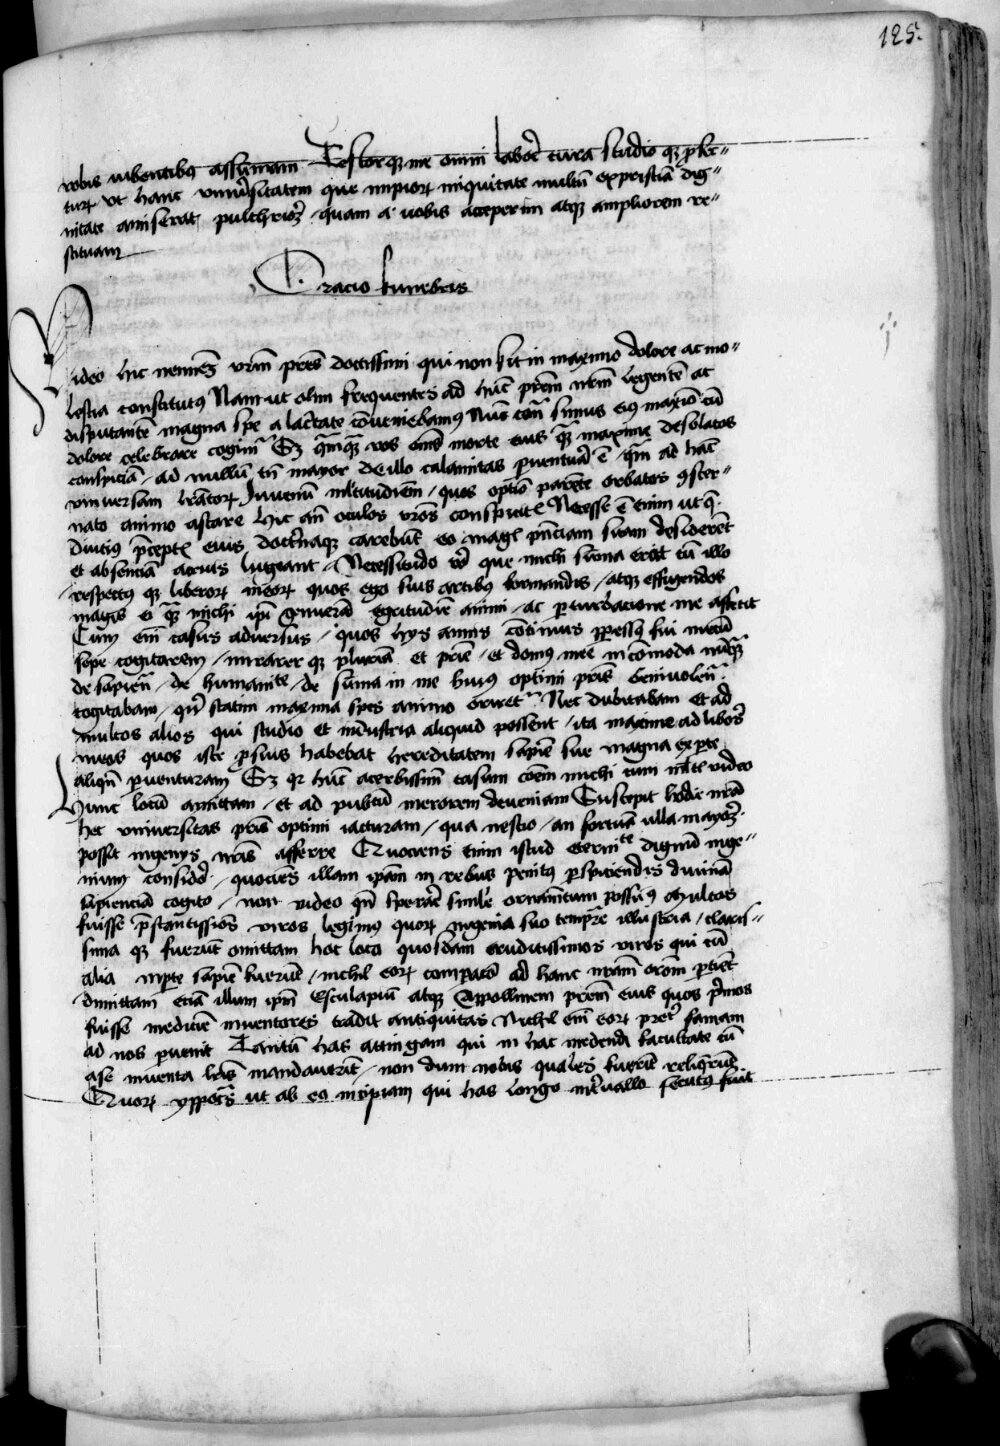 125.
vobis iubentibus assumam Testorque me omni labore cura studio que per be-
 ut hanc universitatem que impiorum iniquitate multum ex pristina dig-
nitate amiserat pulchriorem quam a vobis acceperim atque ampliorem re-
stituam
Oracio funebris
Video hic neminem vestrum patres doctissimi qui non sit in maximo dolore ac mo-
lestia constitutus Nam ut olim frequentes ad hunc patrem nostrum legentem ac
disputantem magna spe conveniebamus Nunc simus eius maximo cum
dolore celebrare cogimur Sed quamquam vos omnes morte eius quam maxime desolatos
conspiciam / ad nullum tamen maior de illo calamitas perventura est quam ad hanc
universam iuvenum multitudinem / quos optimo parente orbatos conster-
nato animo astare hic ante oculos vestros conspicitis Necesse est enim ut quo
diucius preceptis eius doctrinaque carebunt eo magis presenciam suam desiderent
et absenciam acrius lugeant Necessitudo vero que michi summa erat cum illo
respectus que liberorum meorum quos ego suis artibus formandos / atque effingendos
magis quam michi ipsi genueram egritudine animi / ac perturbacione me affecit
Cum enim casus adversus / quos hys annis continuis perpessus fui mecum
sepe cogitarem / mirarer que et patrie / et domus mee incommoda numquam
de sapiencia / de humanitate / de summa in me huius optimi patris benivolencia
cogitabam / quin statim maxima spes animo oriretur Nec dubitabam et ad
multos alios qui studio et industria aliquid possent / ita maxime ad liberos
meos quos iste persuis habebat hereditatem sapiencie sue magna ex parte
aliquando perventuram Sed quia hunc acerbissimum casum communem michi cum multis video
Hunc locum amittam / et ad publicum merorem deveniam Suscepit hodie nostra
hec universitas patris optimi iacturam / qua nescio / an fortuna ulla maiorem
possit ingenys nostris afferre Quociens enim istud eternitate dignum inge-
nium considero / quociens illam ipsam in rebus penitus perspiciendis divinam
sapienciam cogito / non video quando sperare simile ornamentum possimus Multos
fuisse prestantissimos viros legimus quorum ingenia suo tempore illustria / claris-
sima que fuerunt omittam hoc loco quosdam eruditissimos viros qui cum
alia sapiencie fuerunt / nichil eorum comparacio ad hanc nostram oracionem pertinet
Omittam etiam illum ipsum Esculapium atque Appollinem patrem eius quos primos
fuisse medicine inventores tradit antiquitas Nichil enim eorum preter famam
ad nos pervenit Tantum has attingam qui in hac medendi facultate cum
a se inventa litteris mandaverint / non dum nobis quales fuerint reliquerunt
Quorum yppocras ut ab eo incipiam qui has longo intervallo secutus fuit